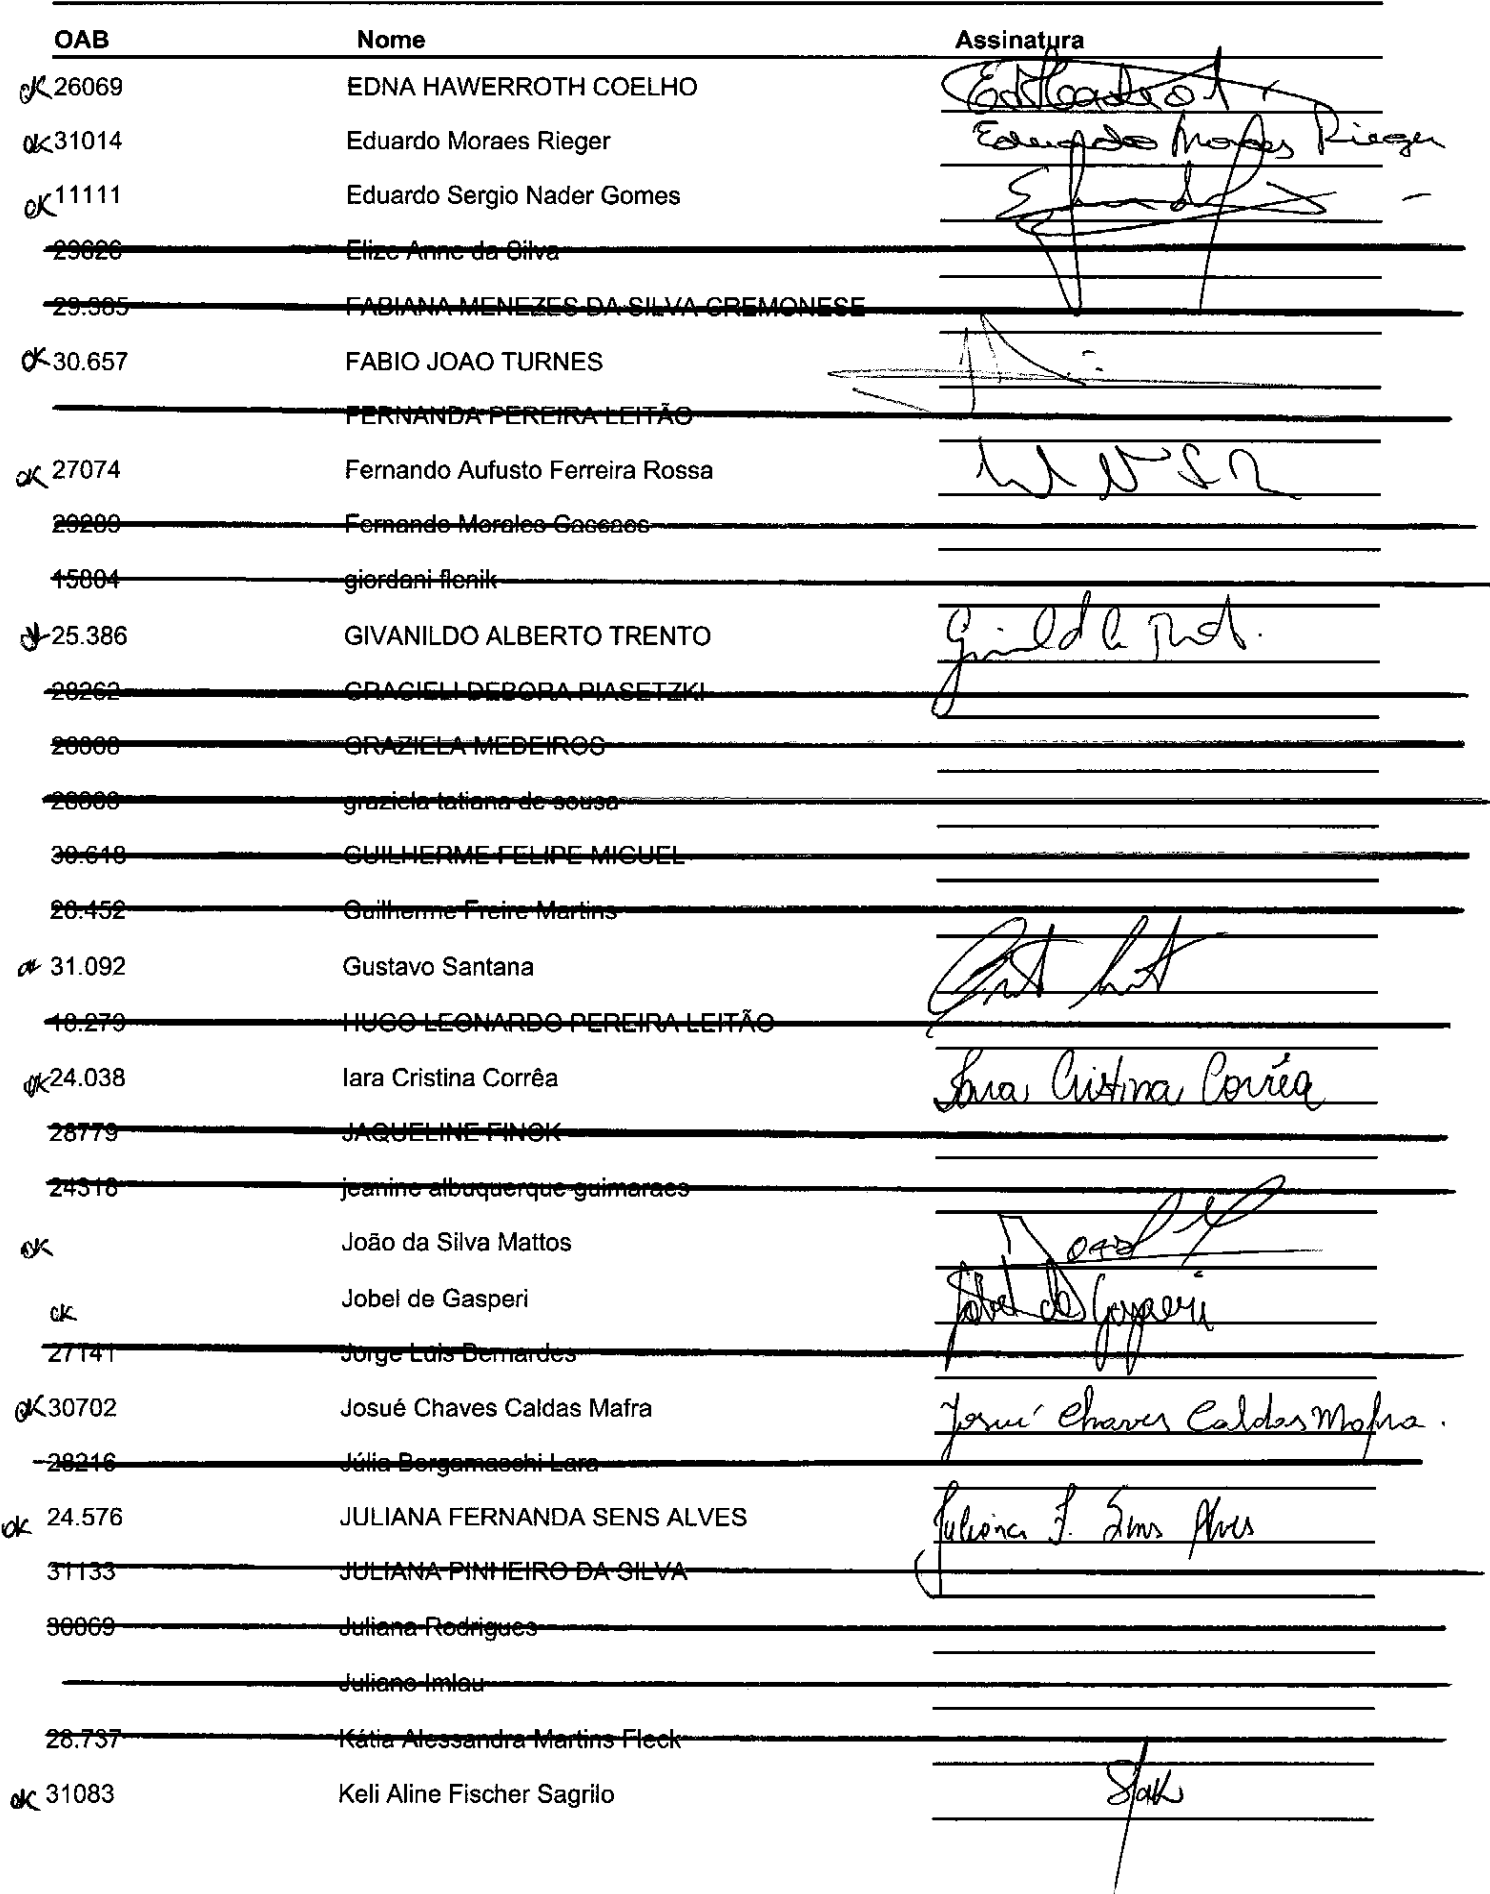 OAB Nome Assinatura
ok 26069 EDNA HAWERROTH COELHO
ok 31014 Eduardo Moraes Rieger Eduardo Moraes Rieger
ok 11111 Eduardo Sergio Nader Gomes
29626 Elize Anne da Silva
29.385 FABIANA MENEZES DA SILVA CREMONESE
ok 30.657 FABIO JOAO TURNES
FERNANDA PEREIRA LEITÃO
ok 27074 Fernando Aufusto Ferreira Rossa
Fernando Morales Cascaes
15804 giordani flenik
ok 25.386 GIVANILDO ALBERTO TRENTO
28262 GRACIELI DEBORA PIASETZKI
GRAZIELA MEDEIROS
graziela tatiana de sousa
30.618 GUILHERME FELIPE MIGUEL
26.452 Guilherme Freire Martins
ok 31.092 Gustavo Santana
18.279 HUGO LEONARDO PEREIRA LEITÃO
ok 24.038 Iara Cristina Corrêa Iara Cristina Corrêa
28779 JAQUELINE FINCK
24318 jeanine albuquerque guimaraes
ok João da Silva Mattos
ok Jobel de Gasperi Jobel de Gasperi
27141 Jorge Luis Bernardes
ok 30702 Josué Chaves Caldas Mafra Josué Chaves Caldas Mafra.
28216 Júlia Bergamaschi Lara
ok 24.576 JULIANA FERNANDA SENS ALVES Juliana F. Sens Alves
31133 JULIANA PINHEIRO DA SILVA
30069 Juliana Rodrigues
Juliano Imlau
28.737 Kátia Alessandra Martins Fleck
ok 31083 Keli Aline Fischer Sagrilo